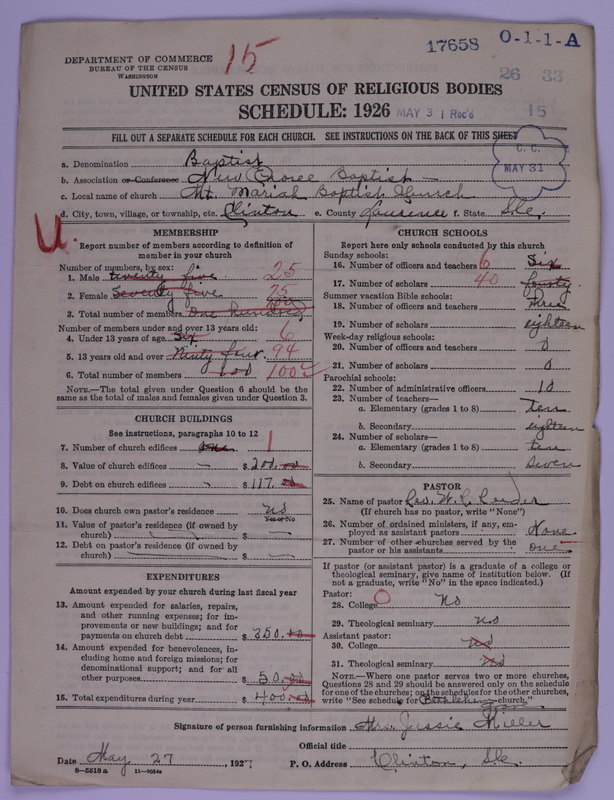 15
17658
O-1-1-A
DEPARTMENT OF COMMERCE
BUREAU OF THE CENSUS
WASHINGTON
26 33
UNITED STATES CENSUS OF RELIGIOUS BODIES
SCHEDULE: 1926
MAY 31 Rec'd
15
FILL OUT A SEPARATE SCHEDULE FOR EACH CHURCH. SEE INSTRUCTIONS ON THE BACK OF THIS SHEET
C. C.
MAY 31
a. Denomination Baptist
b. Association or Conference New Baptist
c. Local name of church Mt. Mariah Baptist Church
d. City, town, village, or township, etc. Clinton e. County Laurence f. State S.C.
U.
MEMBERSHIP
Report number of members according to definition of member in your church
Number of members, by sex:
1. Male twenty five 25
2. Female Seventy five 75
3. Total number of members One hundred 100
Number of members under and over 13 years old:
4. Under 13 years of age six 6
5. 13 years old and over Ninty four 94
6. Total number of members 100 100
NOTE.—The total given under Question 6 should be the same as the total of males and females given under Question 3.
CHURCH BUILDINGS
See instructions, paragraphs 10 to 12
7. Number of church edifices one 1
8. Value of church edifices $ 200.00
9. Debt on church edifices $ 117.00
10. Does church own pastor's residence no
Yes or No
11. Value of pastor's residence (if owned by church) $
12. Debt on pastor's residence (if owned by church) $
EXPENDITURES
Amount expended by your church during last fiscal year
13. Amount expended for salaries, repairs, and other running expenses; for improvements or new buildings; and for payments on church debt $ 350.00
14. Amount expended for benevolences, including home and foreign missions; for denominational support; and for all other purposes $ 50.00
15. Total expenditures during year $ 400.00
CHURCH SCHOOLS
Report here only schools conducted by this church
Sunday schools:
16. Number of officers and teachers 6 Six
17. Number of scholars 40 fourty
Summer vacation Bible schools:
18. Number of officers and teachers three
19. Number of scholars eighteen
Week-day religious schools:
20. Number of officers and teachers 0
21. Number of scholars 0
Parochial schools:
22. Number of administrative officers 10
23. Number of teachers—
a. Elementary (grades 1 to 8) ten
b. Secondary eighteen
24. Number of scholars—
a. Elementary (grades 1 to 8) ten
b. Secondary seven
PASTOR
25. Name of pastor Rev. W.
(If church has no pastor, write "None")
26. Number of ordained ministers, if any, employed as assistant pastors None
27. Number of other churches served by the pastor or his assistants one
If pastor (or assistant pastor) is a graduate of a college or theological seminary, give name of institution below. (If not a graduate, write "No" in the space indicated.)
Pastor:
28. College No
29. Theological seminary No
Assistant pastor:
30. College No
31. Theological seminary No
NOTE.—Where one pastor serves two or more churches, Questions 28 and 29 should be answered only on the schedule for one of the churches; on the schedules for the other churches, write "See schedule for Bethlehem church."
Signature of person furnishing information Mrs. Jessie Miller
Official title
Date May 27, 1927 P. O. Address Clinton, S.C.
8—5618 a 11—9024a